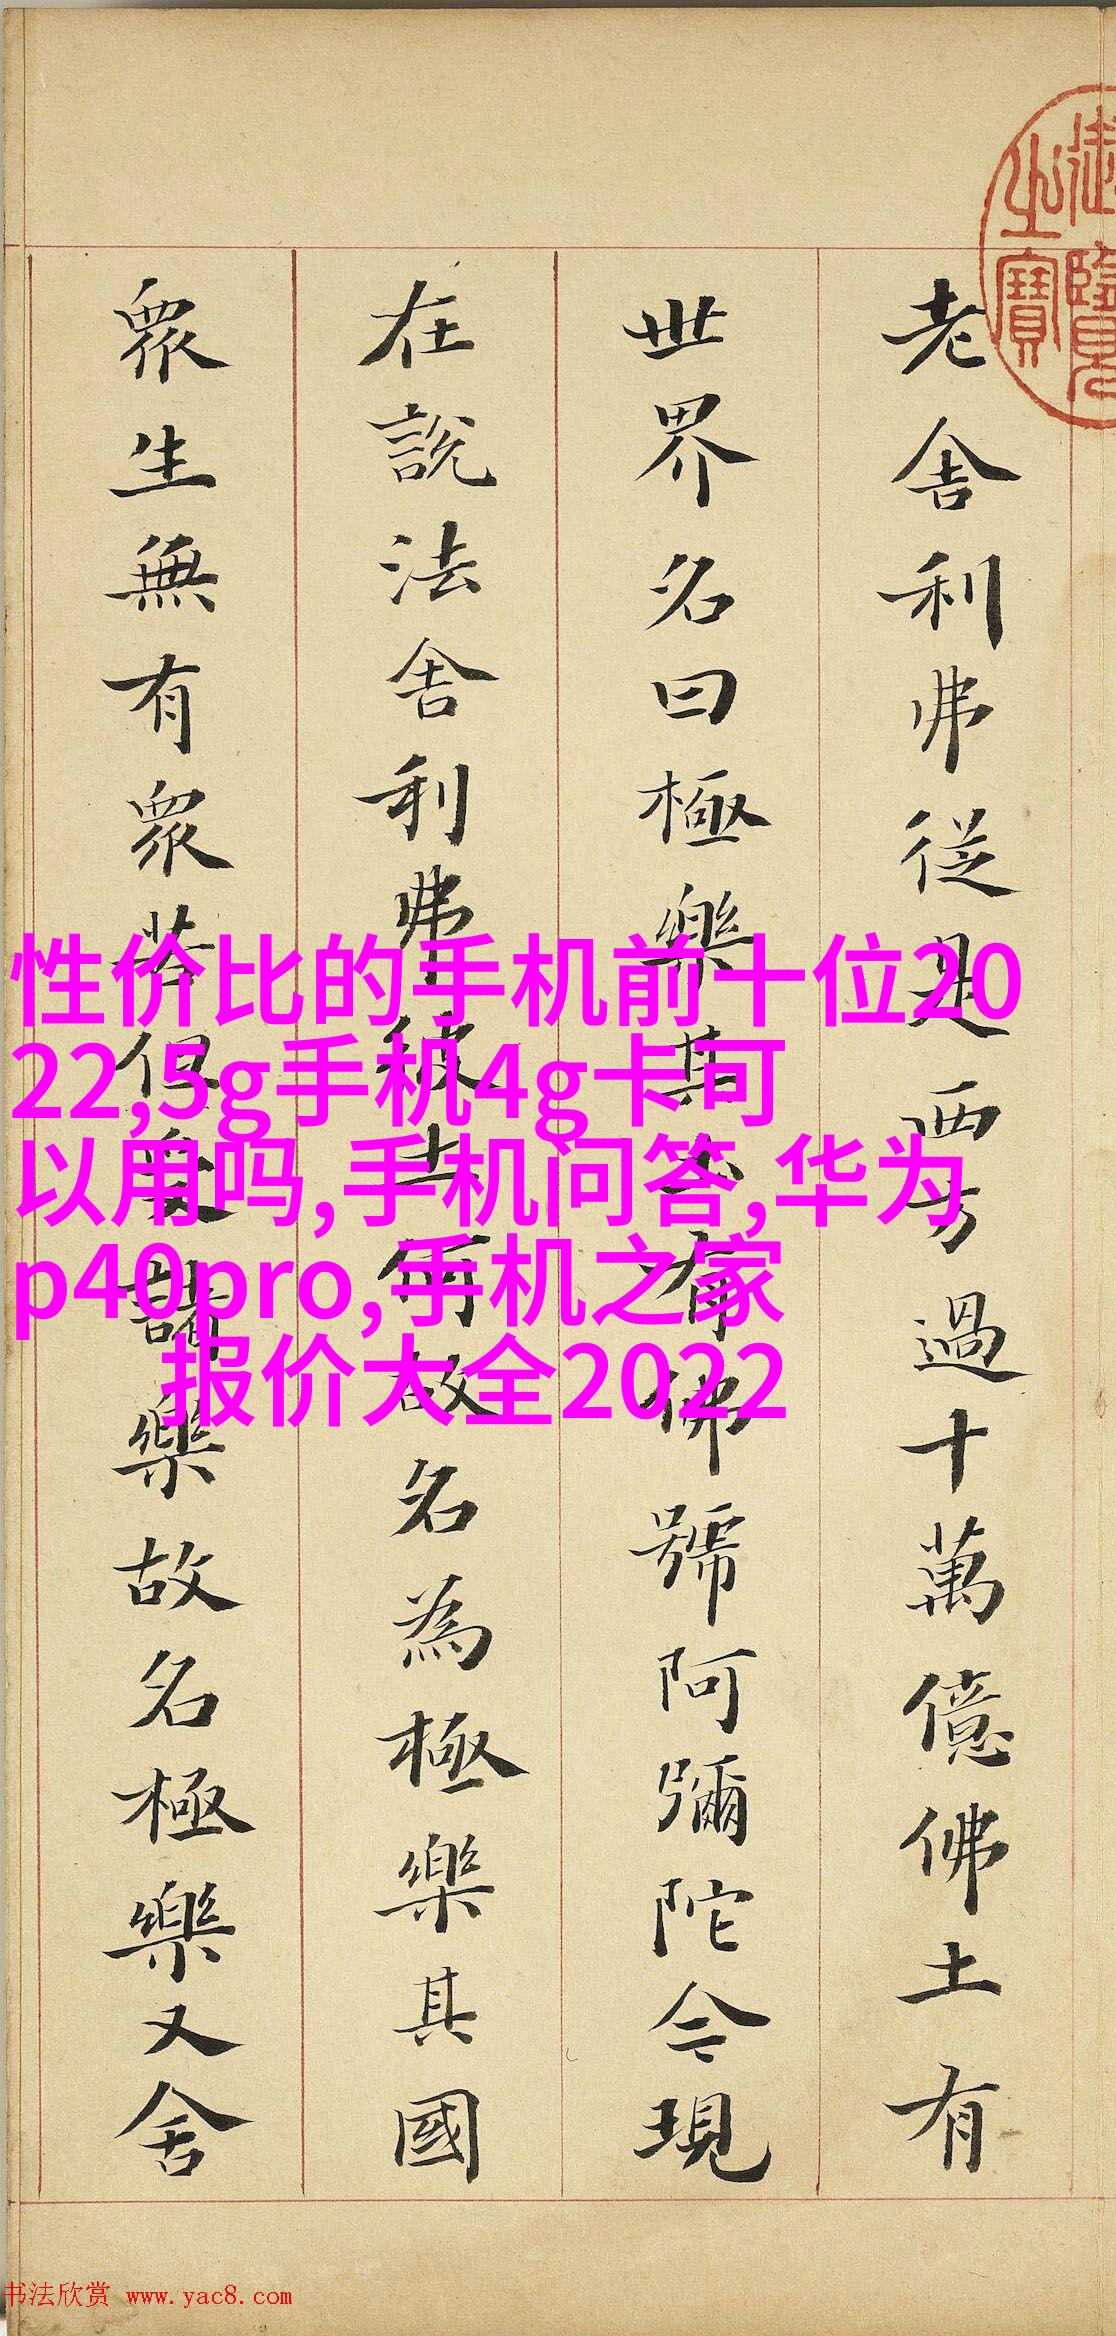 御覽之寶
老舍利弗從是西方過十萬億佛土有
世界名曰極樂其土有佛號阿彌陀今現
在說法舍利弗彼土何故名為極樂其國
眾生無有眾苦但受諸樂故名極樂又舍
性价比的手机前十位20
22,5g手机4g卡可
以用吗,手机问答,华为
p40pro,手机之家
报价大全2022
书法欣赏 www.yac8.com